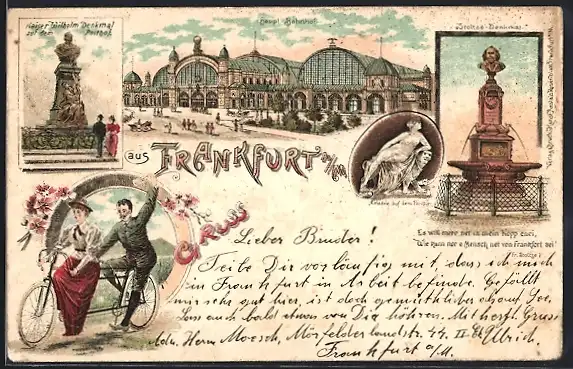 Kaiser Wilhelm Denkmal
auf dem Posthof.
Haupt-Bahnhof.
Stoltze-Denkmal.
aus FRANKFURT a/M
GRUSS
Ariadne auf dem Panther.
Es will merr net in mein Kopp enei,
Wie kann nor e Mensch net von Frankfort sei!
Fr. Stoltze
Lieber Bruder!
Teile Dir vorläufig mit, dass ich mich
in Frankfurt in Arbeit befinde. Gefällt
mir sehr gut hier, ist doch gemüthlicher als auf See.
Lass auch bald etwas von Dir hören. Mit herzl. Gruss
Adr. Herrn Moesch, Mörfelderlandstr. 44. II Et Ulrich.
Frankfurt a/M.